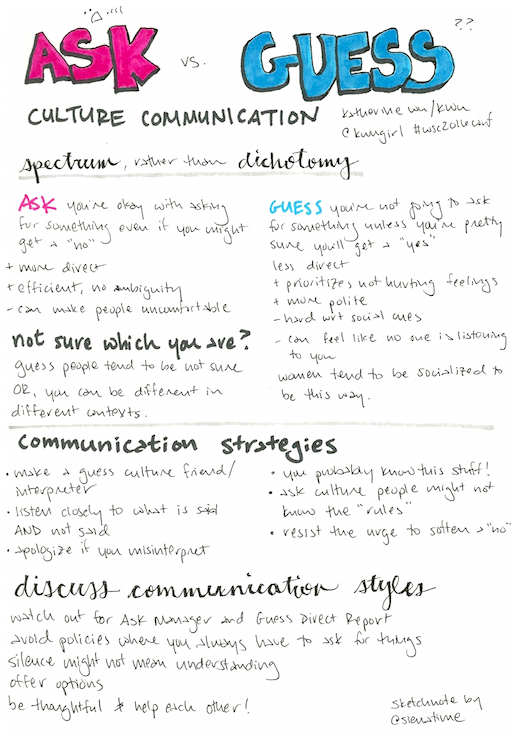 ??
ASK vs. GUESS
CULTURE COMMUNICATION
katherine wu/kwu
@kwugirl #wsc2016conf
spectrum, rather than dichotomy
ASK you're okay with asking
for something even if you might
get a "no"
+ more direct
+ efficient, no ambiguity
- can make people uncomfortable
not sure which you are?
guess people tend to be not sure
OR, you can be different in
different contexts.
GUESS you're not going to ask
for something unless you're pretty
sure you'll get a "yes"
less direct
+ prioritizes not hurting feelings
+ more polite
- hard wrt social cues
- can feel like no one is listening
to you
women tend to be socialized to
be this way.
communication strategies
• make a guess culture friend/
interpreter
• listen closely to what is said
AND not said
• apologize if you misinterpret
• you probably know this stuff!
• ask culture people might not
know the "rules"
• resist the urge to soften a "no"
discuss communication styles
watch out for Ask Manager and Guess Direct Report
avoid policies where you always have to ask for things
silence might not mean understanding
offer options
be thoughtful & help each other!
sketchnote by